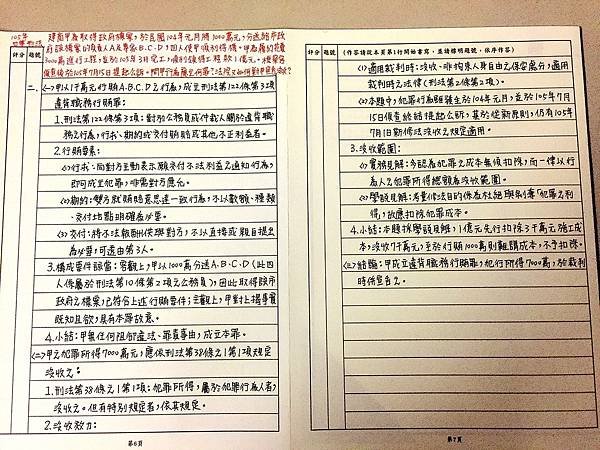 105年
司律刑法
建商甲為取得政府標案,於民國104年元月將1000萬元,分送給市政
府該標案的負責人A及專家B、C、D,四人使甲順利得標。甲為履約花費
3000萬進行工程,並於105年3月完工,順利領得工程款1億元。檢察官
偵查後於105年7月15日提起公訴。問甲行為應
評分 題號
二、(一)甲以1千萬元行賄A、B、C、D之行為,成立刑法第122條第3項
違背職務行賄罪:
1.刑法第122條第3項:對於公務員或仲裁人關於違背職
務之行為,行求、期約或交付賄賂或其他不正利益者。
2.行賄要素:
(1)行求:向對方主動表示願交付不法利益之通知行為,
即可成立犯罪,非需對方應允。
(2)期約:雙方就賄賂意思達一致行為,不以數額、種類
、交付地點明確為必要。
(3)交付:將不法報酬供與對方,不以直接或親自提出
為必要,可透由第3人。
3.構成要件該當:客觀上,甲以1000萬分送A、B、C、D(此四
人係屬於刑法第10條第2項之公務員),因此取得該市
政府之標案,已符合上述行賄要件;主觀上,甲對上揭事實
既知且欲,具有本罪故意。
4.小結:甲無任何阻卻違法、罪責事由,成立本罪。
(二)甲之犯罪所得7000萬元,應依刑法第38條之1第1項規定
沒收之:
1.刑法第38條之1第1項:犯罪所得,屬於犯罪行為人者,
沒收之。但有特別規定者,依其規定。
2.沒收效力:
第6頁
評分 題號 (作答請從本頁第1行開始書寫,並請標明題號,依序作答)
(1)適用裁判時法:沒收、非拘束人身自由之保安處分,適用
裁判時之法律(刑法第2條第2項)。
(2)本題中,犯罪行為雖發生於104年元月,並於105年7月
15日偵查終結提起公訴,基於從新原則,仍有105年
7月1日新修法沒收之規定適用。
3.沒收範圍:
(1)實務見解:多認為犯罪之成本無須扣除,而一律以行
為人之犯罪所得總額為沒收範圍。
(2)學說見解:考量修法目的係為杜絕與剝奪「犯罪之利
得」,故應扣除犯罪成本。
4.小結:本題採學說見解,1億元先行扣除3千萬元施工成
本,沒收7千萬元,至於行賄1000萬則難謂成本,不予扣除。
(三)結論:甲成立違背職務行賄罪,犯行所得7000萬,於裁判
時併宣告之。
第7頁